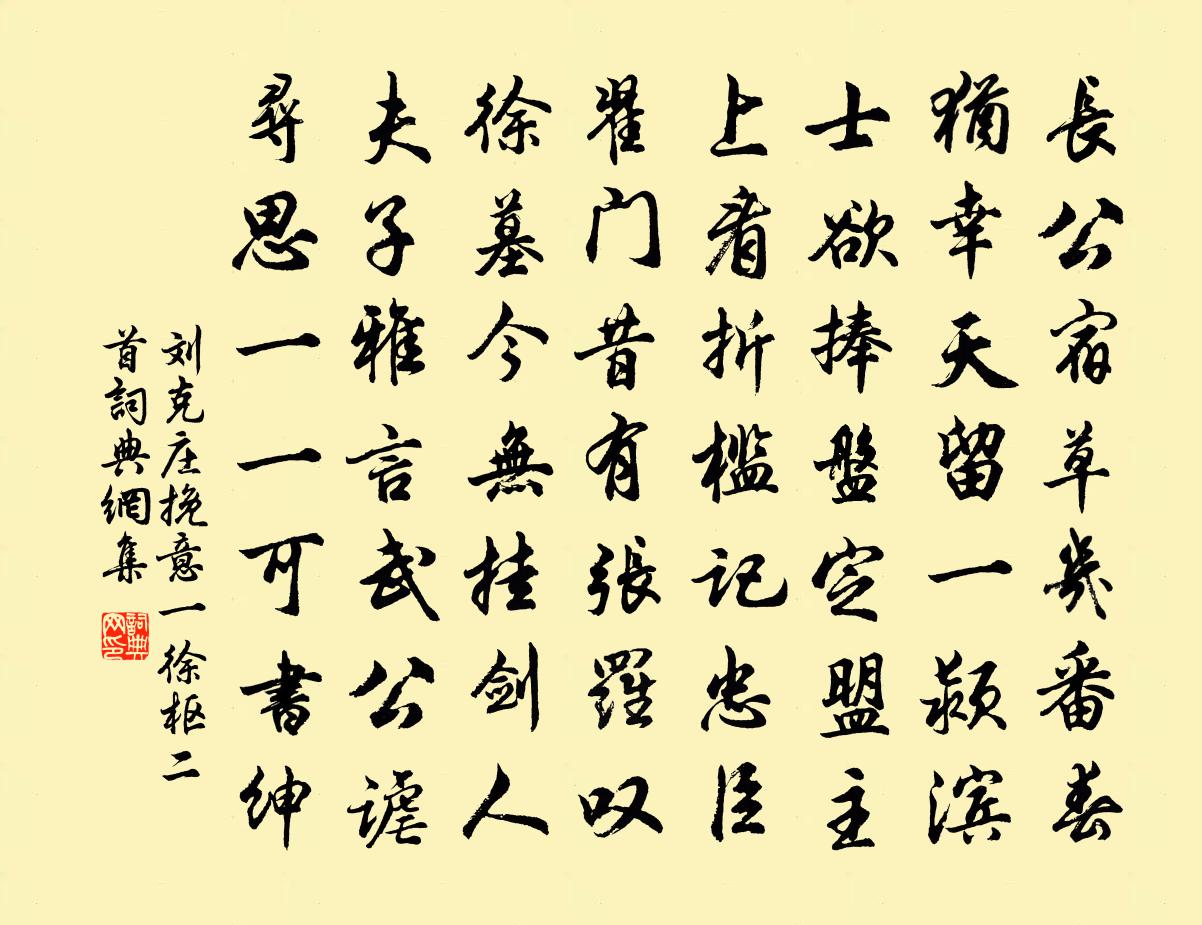 長公宿草幾番春
猶幸天留一潁濱
士欲捧盤定盟主
上看折檻記忠臣
翟門昔有張羅叹
徐墓今無挂劍人
夫子雅言武公謔
尋思一一可書紳
刘克庄挽意一徐枢二
首詞典網集
詞典网印